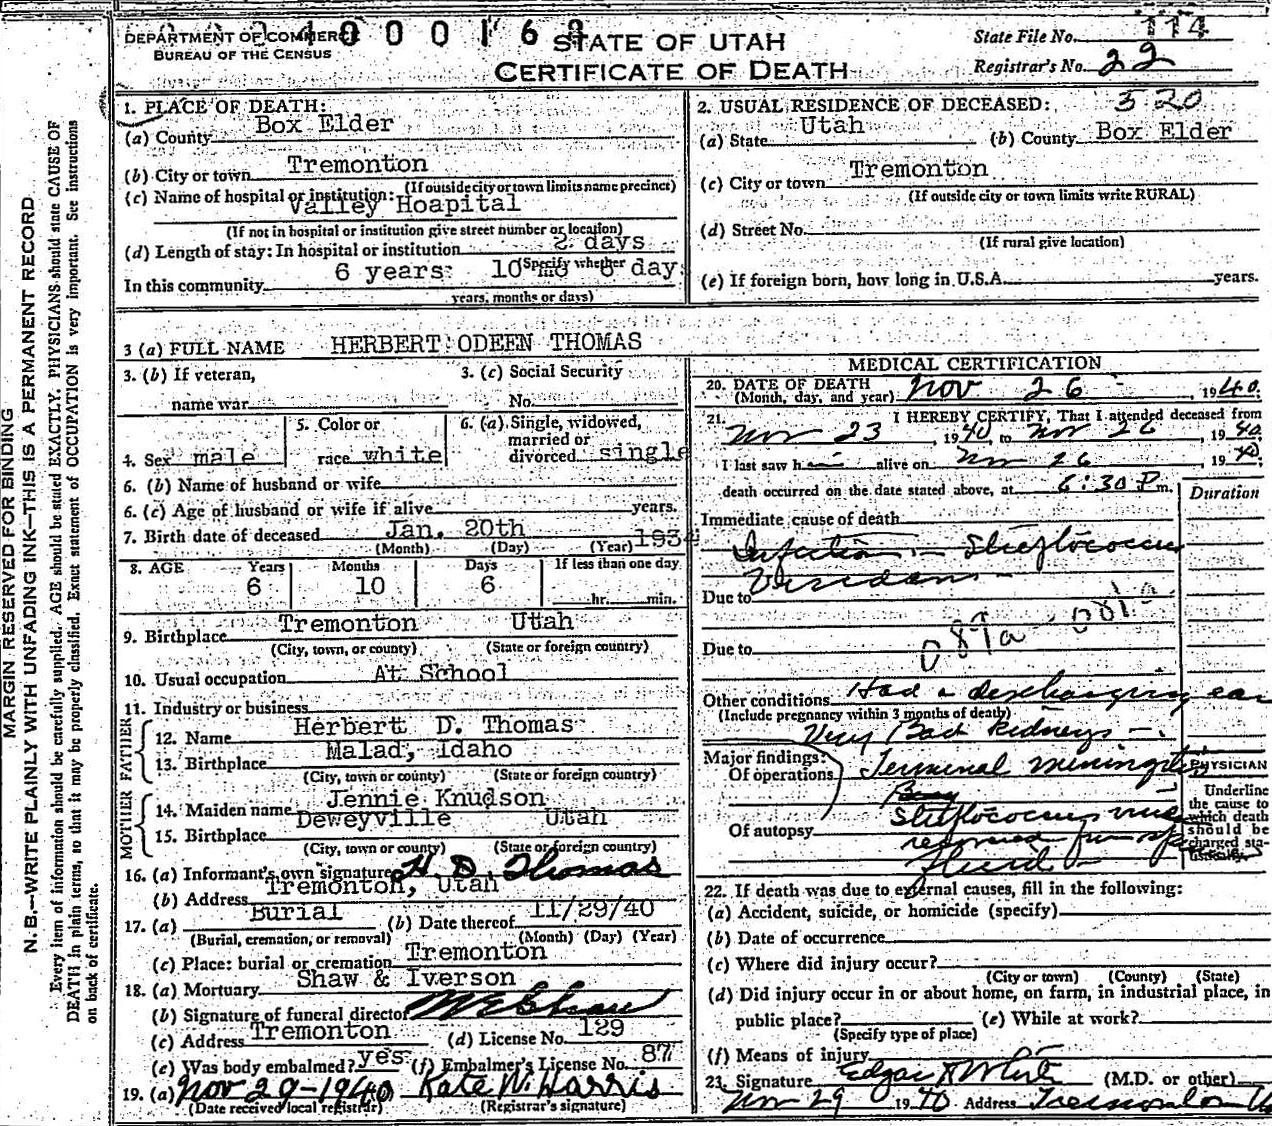 DEPARTMENT OF COMMERCE
BUREAU OF THE CENSUS
STATE OF UTAH
CERTIFICATE OF DEATH
State File No. 114
Registrar's No. 22
MARGIN RESERVED FOR BINDING
N. B.—WRITE PLAINLY WITH UNFADING INK—THIS IS A PERMANENT RECORD
Every item of information should be carefully supplied. AGE should be stated EXACTLY. PHYSICIANS should state CAUSE OF
DEATH in plain terms, so that it may be properly classified. Exact statement of OCCUPATION is very important. See instructions
on back of certificate.
1. PLACE OF DEATH:
(a) County Box Elder
(b) City or town Tremonton
(If outside city or town limits name precinct)
(c) Name of hospital or institution:
Valley Hoapital
(If not in hospital or institution give street number or location)
(d) Length of stay: In hospital or institution 2 days
(Specify whether
In this community 6 years 10 mo 6 day
years, months or days)
2. USUAL RESIDENCE OF DECEASED: 520
(a) State Utah (b) County Box Elder
(c) City or town Tremonton
(If outside city or town limits write RURAL)
(d) Street No.
(If rural give location)
(e) If foreign born, how long in U.S.A. years.
3 (a) FULL NAME HERBERT ODEEN THOMAS
3. (b) If veteran,
name war
3. (c) Social Security
No.
4. Sex male
5. Color or
race white
6. (a) Single, widowed,
married or
divorced single
6. (b) Name of husband or wife
6. (c) Age of husband or wife if alive years.
7. Birth date of deceased Jan. 20th 1934
(Month) (Day) (Year)
8. AGE Years Months Days If less than one day
6 10 6 hr. min.
9. Birthplace Tremonton Utah
(City, town, or county) (State or foreign country)
10. Usual occupation At School
11. Industry or business
FATHER
12. Name Herbert D. Thomas
13. Birthplace Malad, Idaho
(City, town or county) (State or foreign country)
MOTHER
14. Maiden name Jennie Knudson
15. Birthplace Deweyville Utah
(City, town or county) (State or foreign country)
16. (a) Informant's own signature H. D. Thomas
(b) Address Tremonton, Utah
17. (a) Burial (b) Date thereof 11/29/40
(Burial, cremation, or removal) (Month) (Day) (Year)
(c) Place: burial or cremation Tremonton
18. (a) Mortuary Shaw & Iverson
(b) Signature of funeral director
(c) Address Tremonton (d) License No. 129
(e) Was body embalmed? yes (f) Embalmer's License No. 87
19. (a) Nov 29-1940 Kate W. Harris
(Date received local registrar) (Registrar's signature)
MEDICAL CERTIFICATION
20. DATE OF DEATH Nov 26, 1940.
(Month, day, and year)
21. I HEREBY CERTIFY, That I attended deceased from
Nov 23, 1940, to Nov 26, 1940
I last saw h alive on Nov 26 1940
death occurred on the date stated above, at 6:30 P m.
Duration
Immediate cause of death
Infection - Streptococcus
Viridans -
Due to
Due to
Other conditions Had a discharging ear
(Include pregnancy within 3 months of death)
Very Bad Kidneys -
Major findings:
Of operations Terminal miningitis
Streptococcus
Of autopsy
recovered from
fluid -
PHYSICIAN
Underline
the cause to
which death
should be
charged sta-
tistically.
22. If death was due to external causes, fill in the following:
(a) Accident, suicide, or homicide (specify)
(b) Date of occurrence
(c) Where did injury occur?
(City or town) (County) (State)
(d) Did injury occur in or about home, on farm, in industrial place, in
public place? (e) While at work?
(Specify type of place)
(f) Means of injury
23. Signature Edgar White (M.D. or other)
Nov 29 1940 Address Tremonton